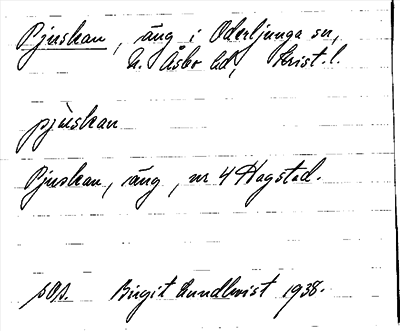 Pjuskan, äng i Oderljunga sn,
N. Åsbo hd, Krist. l.
pjùskan
Pjuskan, äng, nr 4 Hagstad.
sOp. Birgit Lundkvist 1938.